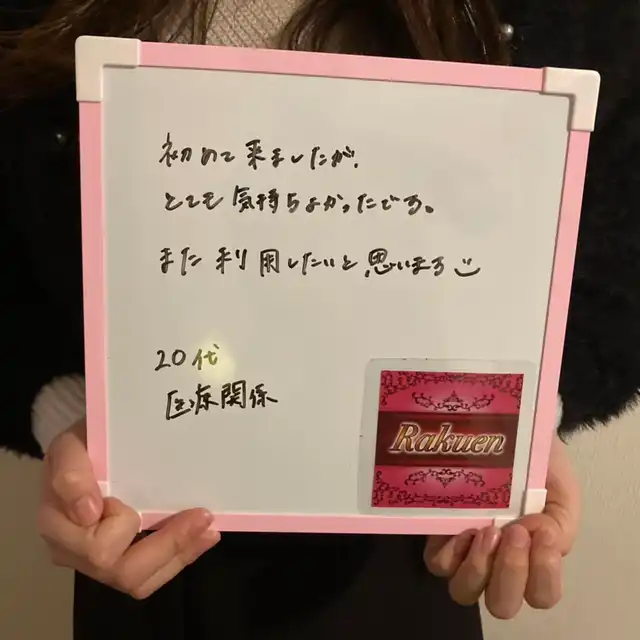 初めて来ましたが、
とても気持ちよかったです。
また利用したいと思います
20代
医療関係
Rakuen